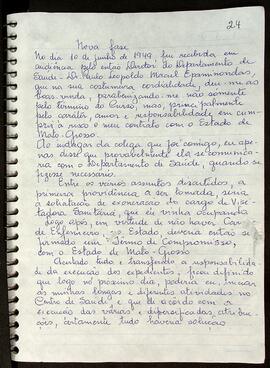 24
Nova fase
No dia 10 de junho de 1949 fui recebida em
audiência pelo então Diretor do Departamento de
Saúde - Dr. Paulo Leopoldo Maciel Epaminondas,
que na sua costumeira cordialidade, deu-me as
boas vindas, parabenizando-me não somente
pelo término do Curso, mas, principalmente
pelo caráter, amor e responsabilidade em cum-
prir à risca o meu contrato com o Estado de
Mato-Grosso.
Ao indagar da colega que foi comigo, eu ape-
nas disse que provavelmente ela se comunica-
ria com o Departamento de Saúde, quando se
fizesse necessário.
Entre os vários assuntos discutidos, a
primeira providência a ser tomada, seria
a solicitação de exoneração do cargo de Visi-
tadora Sanitária, que eu vinha ocupando
e logo após, em virtude de não haver, Car-
go de Enfermeiro, no Estado, deveria então se
firmado um "Termo de Compromisso",
com o Estado de Mato-Grosso
Acertado tudo e transferido a responsabilida-
de da execução dos expedientes, ficou definido
que logo no próximo dia, poderia eu, iniciar
as minhas longas e diferentes atividades no
Centro de Saúde, e que de acôrdo com a
execução das várias e diversificadas atribui-
ções, certamente tudo haveria solução